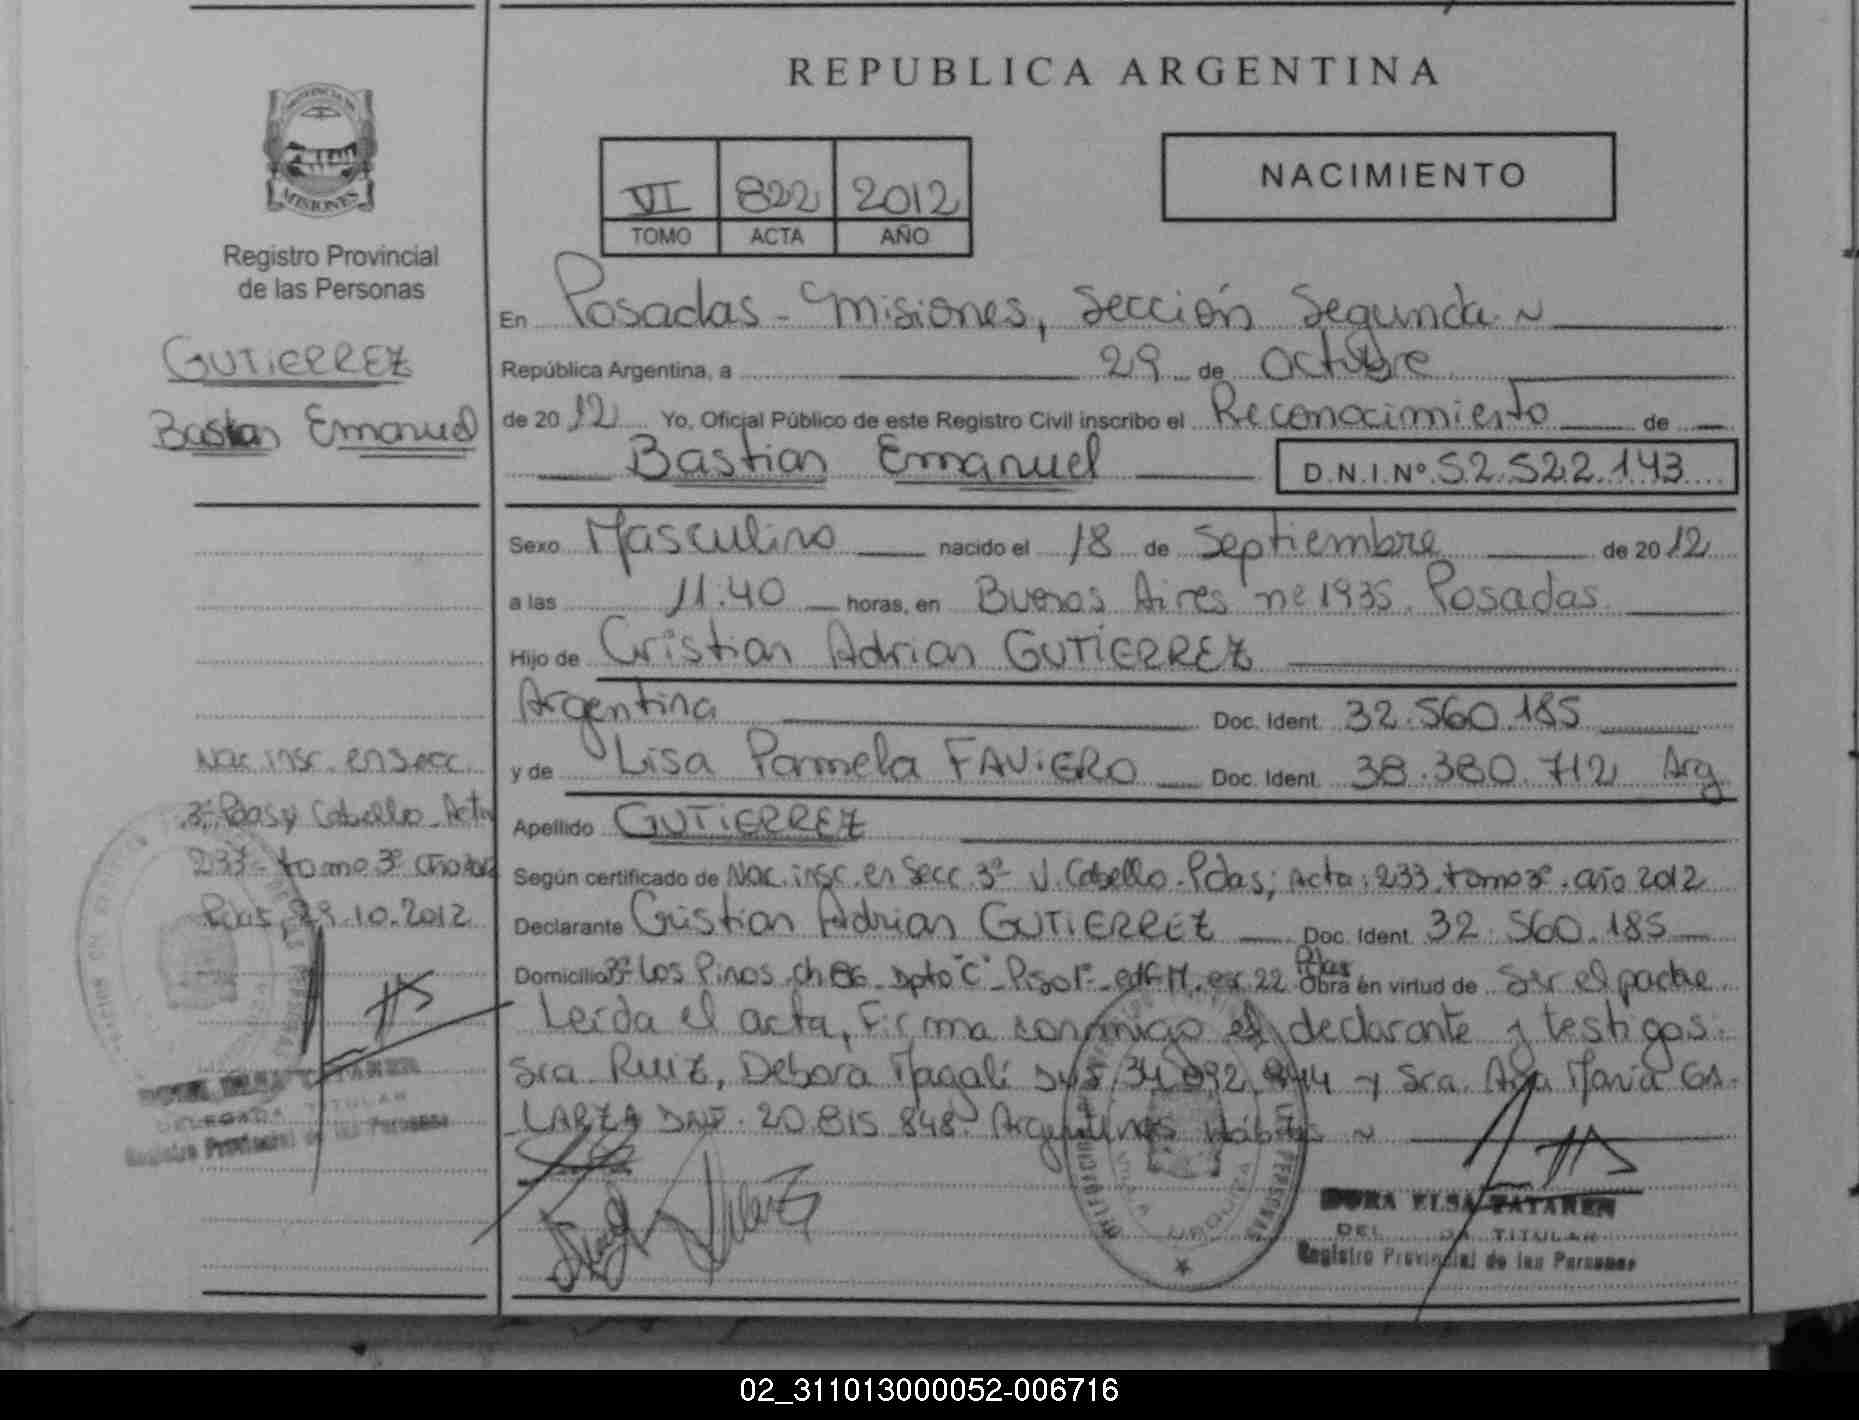 REPUBLICA ARGENTINA
NACIMIENTO
VI 822 2012
TOMO ACTA AÑO
MISIONES
Registro Provincial
de las Personas
GUTIERREZ
Bastian Emanuel
En Posadas - Misiones, Sección Segunda
República Argentina, a 29 de Octubre
de 2012 Yo, Oficial Público de este Registro Civil inscribo el Reconocimiento de
Bastian Emanuel D.N.I.Nº 52.522.143
Sexo Masculino nacido el 18 de Septiembre de 2012
a las 11:40 horas, en Buenos Aires nº 1935. Posadas
Hijo de Cristian Adrian GUTIERREZ
Argentina Doc. Ident. 32.560.185
y de Lisa Pamela FAVIERO Doc. Ident. 38.380.712 Arg
Apellido GUTIERREZ
Según certificado de Nac. insc. en Secc. 3º V. Cabello. Pdas; Acta: 233. tomo 3º. año 2012
Declarante Cristian Adrian GUTIERREZ Doc. Ident. 32.560.185
Domicilio Bº Los Pinos. ch 86. Dpto "C" Piso 1º edf. M. esc. 22 Pdas Obra en virtud de Ser el padre
Leída el acta, Firma conmigo el declarante y testigos.
Sra. Ruiz, Debora Magalí DNI y Sra. Ana María GA-
LARZA DNI. 20.815.848 Argentinas Hábiles
Nac. insc. en Secc.
3º Pdas V Cabello. Acta
233 tomo 3º año 2012
Pdas, 29.10.2012
DORA ELSA
DELEGADA TITULAR
Registro Provincial de las Personas
DORA ELSA
TITULAR
Registro Provincial de las Personas
02_311013000052-006716